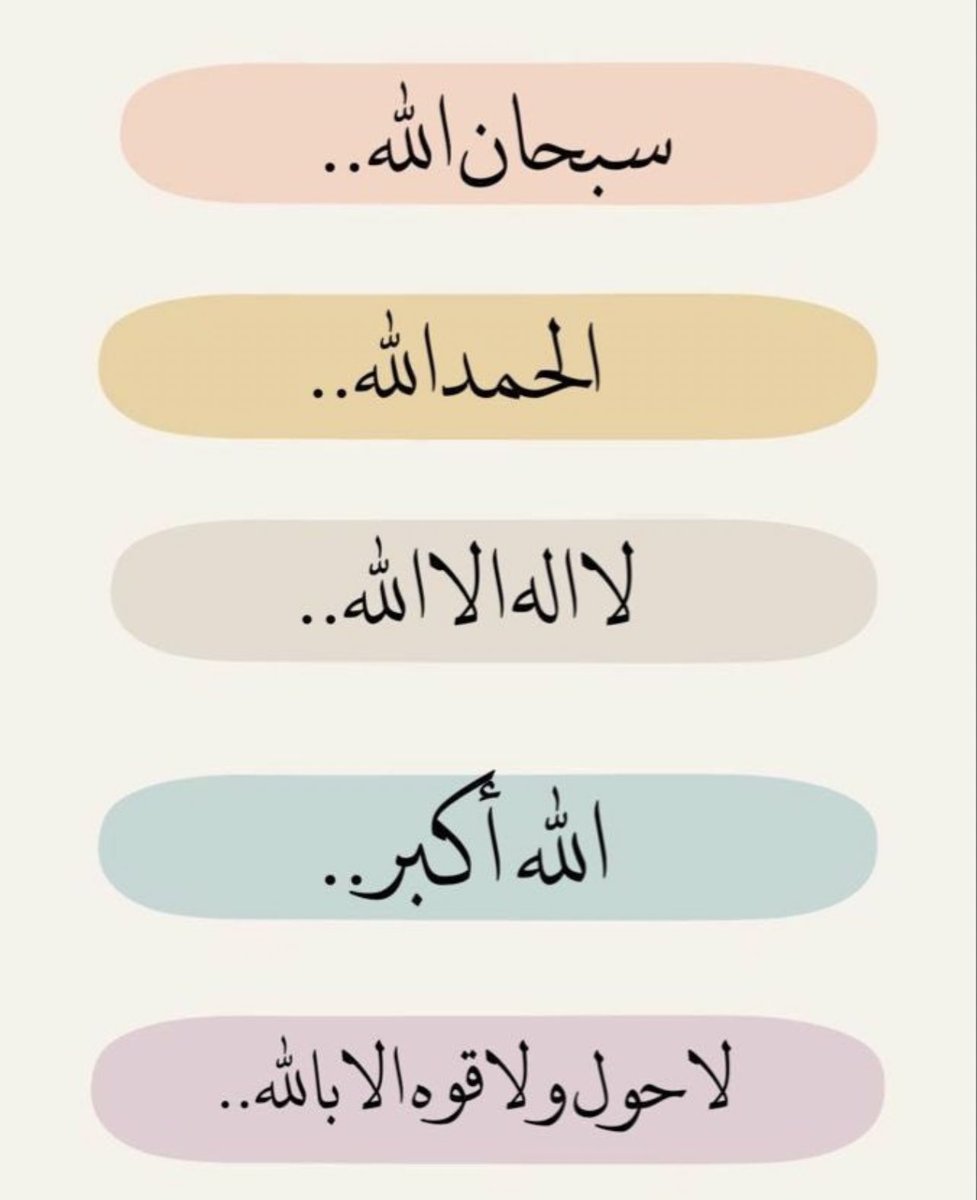 سبحان الله..
الحمدالله..
لا اله الا الله..
الله أكبر..
لا حول ولا قوه الا بالله..